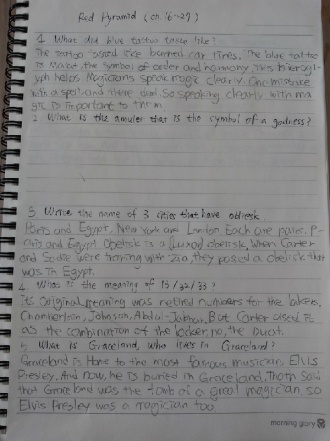 Red Pyramid (ch. 16-27)
1. What did blue tattoo taste like?
The tattoo tasted like burned car tires. The blue tattoo
is Ma'at, the symbol of order and harmony. This hierogl-
yph helps Magicians speak magic clearly. One mistake
with a spell and there dead. So speaking clearly with ma
gic is important to them.
2. What is the amulet that is the symbol of a godness?
3. Write the name of 3 cities that have oblisk
Paris and Egypt, New york and London Each one pairs. P-
aris and Egypt Obelisk is a (Luxor) obelisk, When Carter
and Sadie were training with Zia, they passed a obelisk that
was in Egypt.
4. What is the meaning of 13/32/33?
Its original meaning was retired numbers for the lakers,
Chamberlain, Johnson, Abdul-Jabbar, But Carter used it
as the combination of the locker, no, the Ducat.
5. What is Graceland, who lives in Graceland?
Graceland is Home to the most famous musician, Elvis
Presley. And now, he is buried in Graceland, Thoth said
that Graceland was the tomb of a great magician so
Elvis Presley was a magician too
morning glory